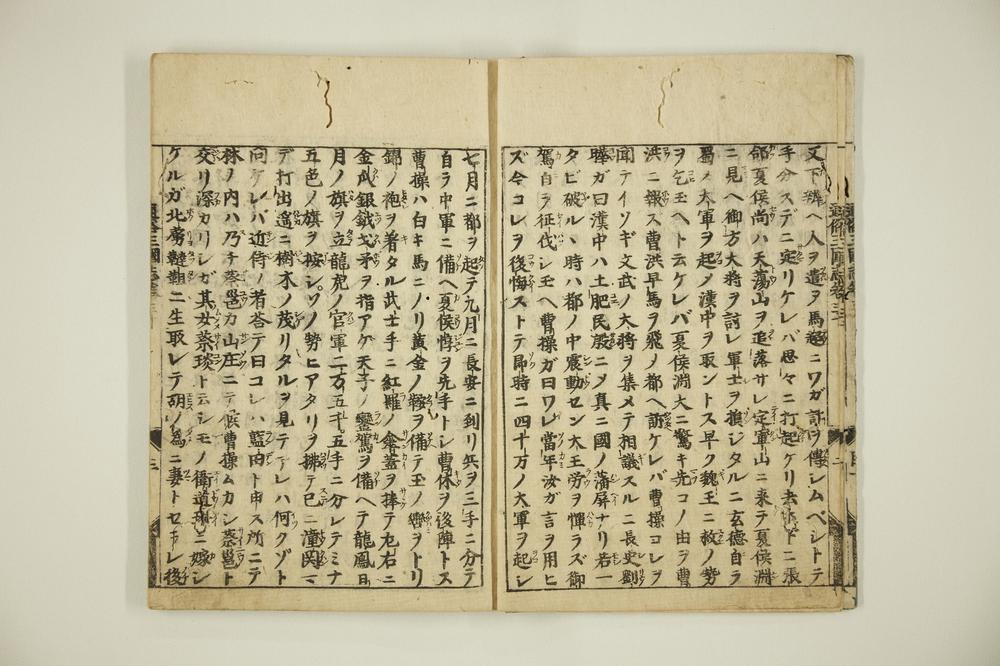 又下辨ヘ人ヲ遣ヲ馬超ニワガ計ヲ傳シムベシトテ
手分スデニ定リケレバ思々ニ打起ケリ去ホドニ張
郃夏侯尚ハ天蕩山ヲ追落サレ定軍山ニ来テ夏侯淵
ニ見ヘ御方大将ヲ討レ軍士ヲ損シタルニ玄德自ラ
蜀ノ大軍ヲ起ノ漢中ヲ取ントス早ク魏王ニ救ノ勢
ヲ乞玉ヘト云ケレバ夏侯淵大ニ驚キ先コノ由ヲ曹
洪ニ報ス曹洪早馬ヲ飛ノ都ヘ訴ケレバ曹操コレヲ
聞テイソギ文武ノ大将ヲ集メテ相議スルニ長史劉
曄ガ曰漢中ハ土肥民殷ニヲ真ニ國ノ藩屏ナリ若一
タビ破ルヽ時ハ都ノ中震動セン大王労ヲ憚ラズ御
駕自ラ征伐シ玉ヘ曹操ガ曰ワレ當年汝ガ言ヲ用ヒ
ズ今コレヲ後悔ストテ即時ニ四十万ノ大軍ヲ起シ
七月ニ都ヲ起テ九月ニ長安ニ到リ兵ヲ三手ニ分テ
自ラ中軍ニ備ヘ夏侯惇ヲ先手トシ曹休ヲ後陣トス
曹操ハ白キ馬ニノリ黄金ノ鞍ヲ備テ玉ノ轡ヲトリ
錦ノ袍ヲ着タル武士手ニ紅羅ノ傘蓋ヲ捧テ左右ニ
金瓜銀鉞戈矛ヲ指アゲ天子ノ鑾駕ヲ備ヘテ龍鳳日
月ノ旗ヲ立龍虎ノ官軍二万五千五手ニ分レテミナ
五色ノ旗ヲ按シソノ勢ヒアタリヲ拂テ已ニ潼関マ
デ打出遙ニ樹木ノ茂リタルヲ見テアレハ何クゾト
問ケレバ近侍ノ者答テ曰コレハ藍田ト申ス所ニテ
林ノ内ハ乃チ蔡邕カ山庄ニテ候曹操ムカシ蔡邕ト
交リ深カリシガ其女蔡琰ト云シモノ衛道玠ニ嫁シ
ケルガ北虜韃靼ニ生取レテ胡ノ為ニ妻トセラレ後